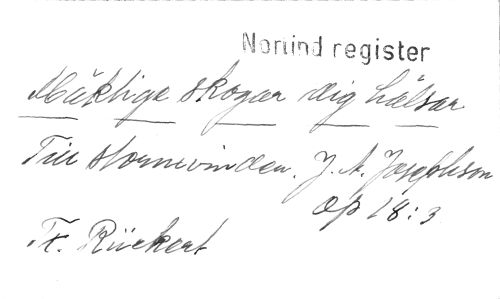 Norlind register
Mäktige skogar dig hälsar
Till stormvinden. J. A. Josephson
op 18:3
Fr. Rückert